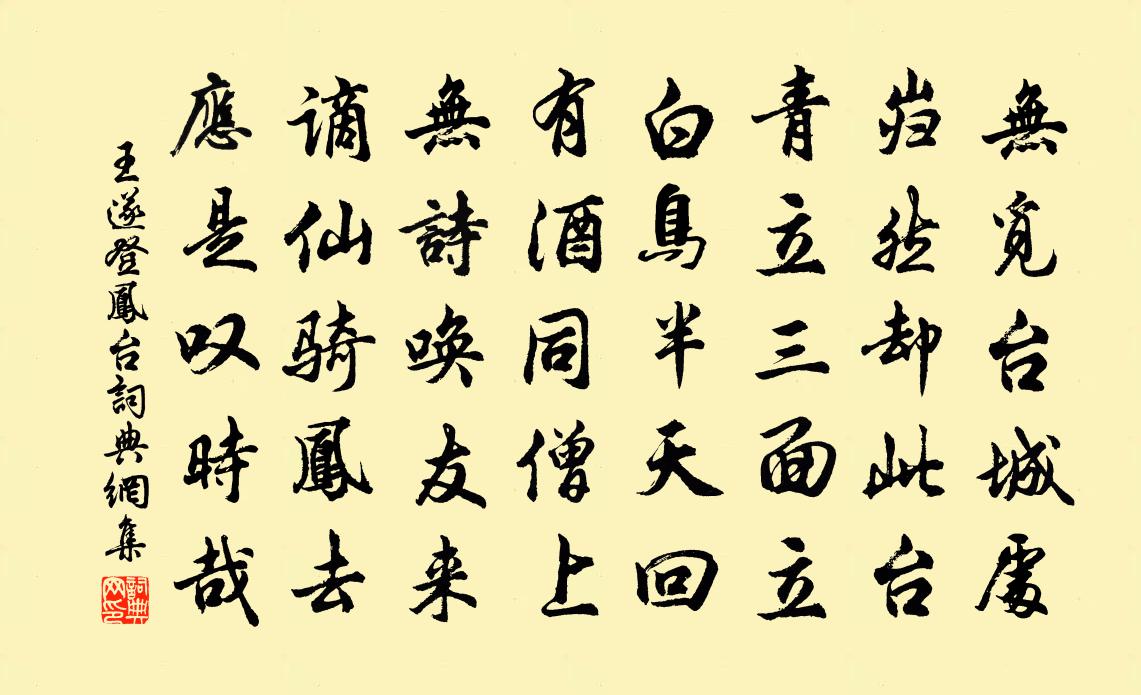 無覓台城處
岿然却此台
青立三面立
白鳥半天回
有酒同僧上
無詩唤友来
謫仙騎鳳去
應是叹時哉
王遂登鳳台詞典網集
詞典網印